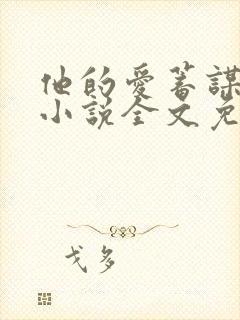 他的愛蓄謀
小說全文免
戈多